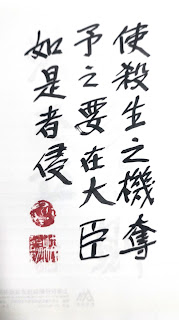 使殺生之機奪
予之要在大臣
如是者侵